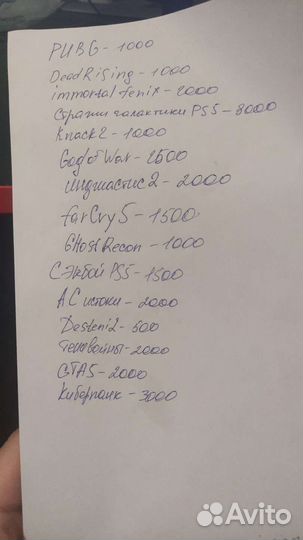 PUBG - 1000
Dead Rising - 1000
immortal fenix - 2000
Стражи галактики PS5 - 3000
Knack 2 - 1000
God of War - 2500
Инджастис 2 - 2000
farCry 5 - 1500
Ghost Recon - 1000
Сэкбой PS5 - 1500
AC истоки - 2000
Desteni 2 - 500
2000
GTA5 - 2000
Киберпанк - 3000
Avito